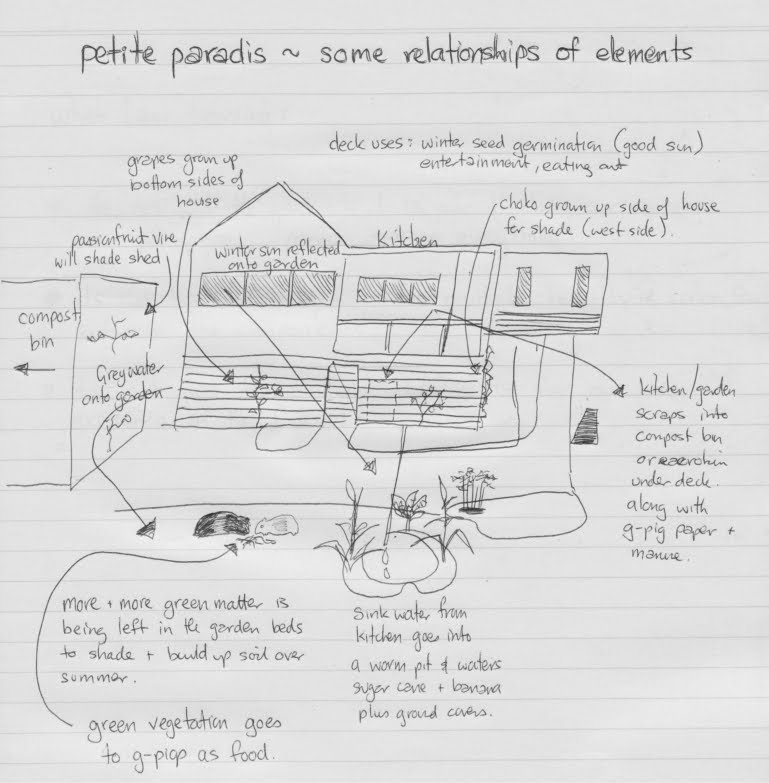 petite paradis ~ some relationships of elements
deck uses: winter seed germination (good sun)
entertainment, eating out
grapes grown up
bottom sides of
house
choko grown up side of house
for shade (west side).
passionfruit vine
will shade shed
winter sun reflected
onto garden
Kitchen
compost
bin
Greywater
onto garden
kitchen/garden
scraps into
compost bin
under deck.
along with
g-pig paper +
manure.
more + more green matter is
being left in the garden beds
to shade + build up soil over
summer.
Sink water from
kitchen goes into
a worm pit & waters
sugar cane + banana
plus ground covers.
green vegetation goes
to g-pigs as food.